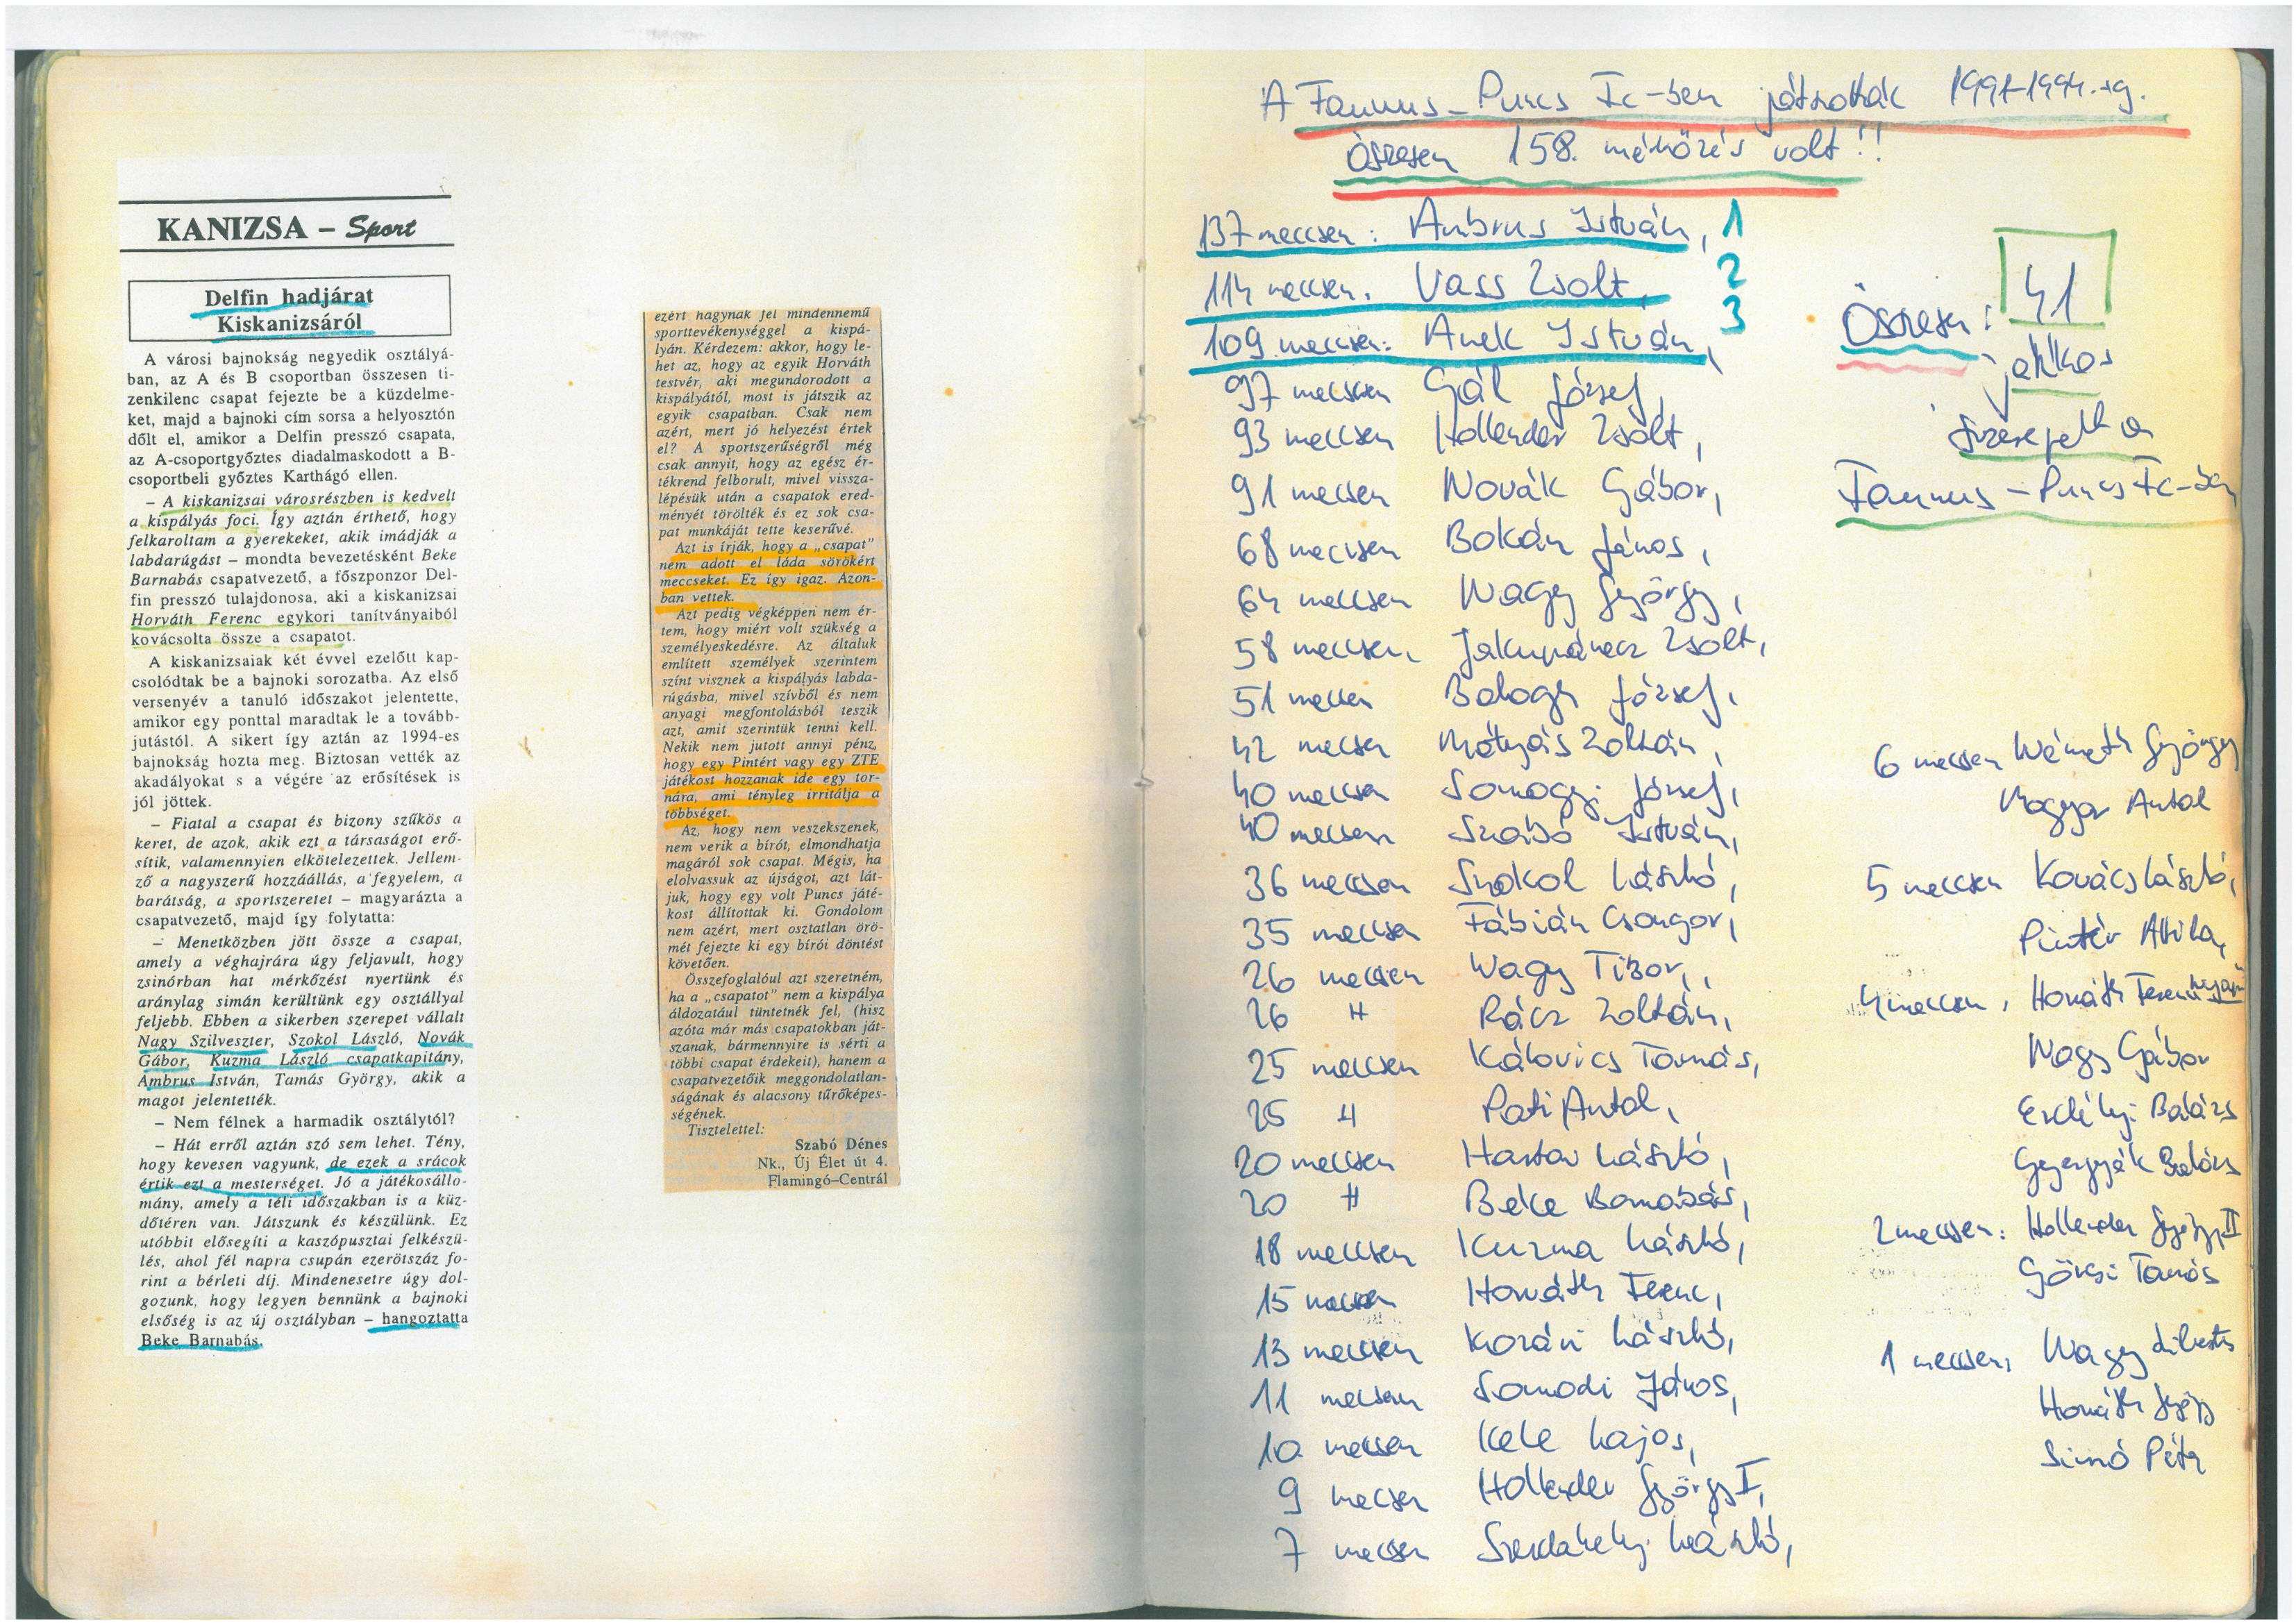 KANIZSA – Sport
Delfin hadjárat
Kiskanizsáról
A városi bajnokság negyedik osztályá-
ban, az A és B csoportban összesen ti-
zenkilenc csapat fejezte be a küzdelme-
ket, majd a bajnoki cím sorsa a helyosztón
dőlt el, amikor a Delfin presszó csapata,
az A-csoportgyőztes diadalmaskodott a B-
csoportbeli győztes Karthágó ellen.
– A kiskanizsai városrészben is kedvelt
a kispályás foci. Így aztán érthető, hogy
felkaroltam a gyerekeket, akik imádják a
labdarúgást – mondta bevezetésként Beke
Barnabás csapatvezető, a főszponzor Del-
fin presszó tulajdonosa, aki a kiskanizsai
Horváth Ferenc egykori tanítványaiból
kovácsolta össze a csapatot.
A kiskanizsaiak két évvel ezelőtt kap-
csolódtak be a bajnoki sorozatba. Az első
versenyév a tanuló időszakot jelentette,
amikor egy ponttal maradtak le a tovább-
jutástól. A sikert így aztán az 1994-es
bajnokság hozta meg. Biztosan vették az
akadályokat s a végére az erősítések is
jól jöttek.
– Fiatal a csapat és bizony szűkös a
keret, de azok, akik ezt a társaságot erő-
sítik, valamennyien elkötelezettek. Jellem-
ző a nagyszerű hozzáállás, a fegyelem, a
barátság, a sportszeretet – magyarázta a
csapatvezető, majd így folytatta:
– Menetközben jött össze a csapat,
amely a véghajrára úgy feljavult, hogy
zsinórban hat mérkőzést nyertünk és
aránylag simán kerültünk egy osztállyal
feljebb. Ebben a sikerben szerepet vállalt
Nagy Szilveszter, Szokol László, Novák
Gábor, Kuzma László csapatkapitány,
Ambrus István, Tamás György, akik a
magot jelentették.
– Nem félnek a harmadik osztálytól?
– Hát erről aztán szó sem lehet. Tény,
hogy kevesen vagyunk, de ezek a srácok
értik ezt a mesterséget. Jó a játékosállo-
mány, amely a téli időszakban is a küz-
dőtéren van. Játszunk és készülünk. Ez
utóbbit elősegíti a kaszópusztai felkészü-
lés, ahol fél napra csupán ezerötszáz fo-
rint a bérleti díj. Mindenesetre úgy dol-
gozunk, hogy legyen bennünk a bajnoki
elsőség is az új osztályban – hangoztatta
Beke Barnabás.
ezért hagynak fel mindennemű
sporttevékenységgel a kispá-
lyán. Kérdezem: akkor, hogy le-
het az, hogy az egyik Horváth
testvér, aki megundorodott a
kispályától, most is játszik az
egyik csapatban. Csak nem
azért, mert jó helyezést értek
el? A sportszerűségről még
csak annyit, hogy az egész ér-
tékrend felborult, mivel vissza-
lépésük után a csapatok ered-
ményét törölték és ez sok csa-
pat munkáját tette keserűvé.
Azt is írják, hogy a „csapat”
nem adott el láda sörökért
meccseket. Ez így igaz. Azon-
ban vettek.
Azt pedig végképpen nem ér-
tem, hogy miért volt szükség a
személyeskedésre. Az általuk
említett személyek szerintem
színt visznek a kispályás labda-
rúgásba, mivel szívből és nem
anyagi megfontolásból teszik
azt, amit szerintük tenni kell.
Nekik nem jutott annyi pénz,
hogy egy Pintért vagy egy ZTE
játékost hozzanak ide egy tor-
nára, ami tényleg irritálja a
többséget.
Az, hogy nem veszekszenek,
nem verik a bírót, elmondhatja
magáról sok csapat. Mégis, ha
elolvassuk az újságot, azt lát-
juk, hogy egy volt Puncs játé-
kost állítottak ki. Gondolom
nem azért, mert osztatlan örö-
mét fejezte ki egy bírói döntést
követően.
Összefoglalóul azt szeretném,
ha a „csapatot” nem a kispálya
áldozatául tüntetnék fel, (hisz
azóta már más csapatokban ját-
szanak, bármennyire is sérti a
többi csapat érdekeit), hanem a
csapatvezetőik meggondolatlan-
ságának és alacsony tűrőképes-
ségének.
Tisztelettel:
Szabó Dénes
Nk., Új Élet út 4.
Flamingó–Centrál
A Faunus–Puncs Fc-ben játszottak 1991-1994.-ig.
Összesen 158. mérkőzés volt!!
137 meccsen: Ambrus István, 1
114 meccsen. Vass Zsolt, 2
109 meccsen: Anek István, 3
97 meccsen Gál József,
93 meccsen Hollender Zsolt,
91 meccsen Novák Gábor,
68 meccsen Bokán János,
64 meccsen Nagy György,
58 meccsen Jakupánecz Zsolt,
51 meccsen Balogh József,
42 meccsen Mátyás Zoltán,
40 meccsen Somogyi József,
40 meccsen Szabó István,
36 meccsen Szokol László,
35 meccsen Fábián Csongor,
26 meccsen Nagy Tibor,
26 " Rácz Zoltán,
25 meccsen Kálovics Tamás,
25 " Pati Antal,
20 meccsen Hartai László,
20 " Beke Barnabás,
18 meccsen Kuzma László,
15 meccsen Horváth Ferenc,
13 meccsen Kozári László,
11 meccsen Somodi János,
10 meccsen Kele Lajos,
9 meccsen Hollender György I,
7 meccsen Szerdahelyi László,
Összesen: 41
játékos
szerepelt a
Faunus–Puncs Fc-ben
6 meccsen Németh Gyöngy
Magyar Antal
5 meccsen Kovács László,
Pintér Attila,
4 meccsen, Horváth Ferenc
Nagy Gábor
Erdélyi Balázs
Gyergyák Balázs
2 meccsen: Hollender György II
Göcsi Tamás
1 meccsen, Nagy Silvester
Horváth György
Simó Péter